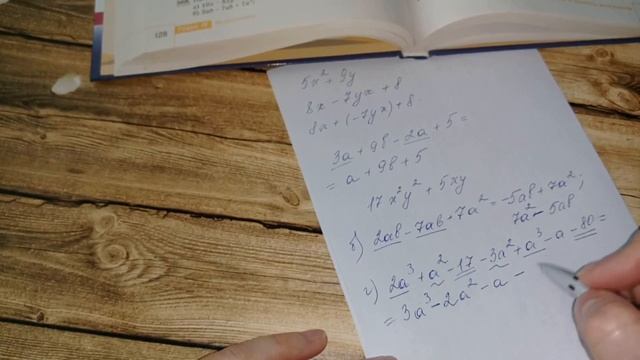 128
5x² + 9y
8x - 7yx + 8
8x + (-7yx) + 8.
3a + 9b - 2a + 5 =
= a + 9b + 5
17x²y² + 5xy
б) 2ab - 7ab + 7a² = -5ab + 7a²;
7a² - 5ab
г) 2a³ + a² - 17 - 3a² + a³ - a - 80 =
= 3a³ - 2a² - a -